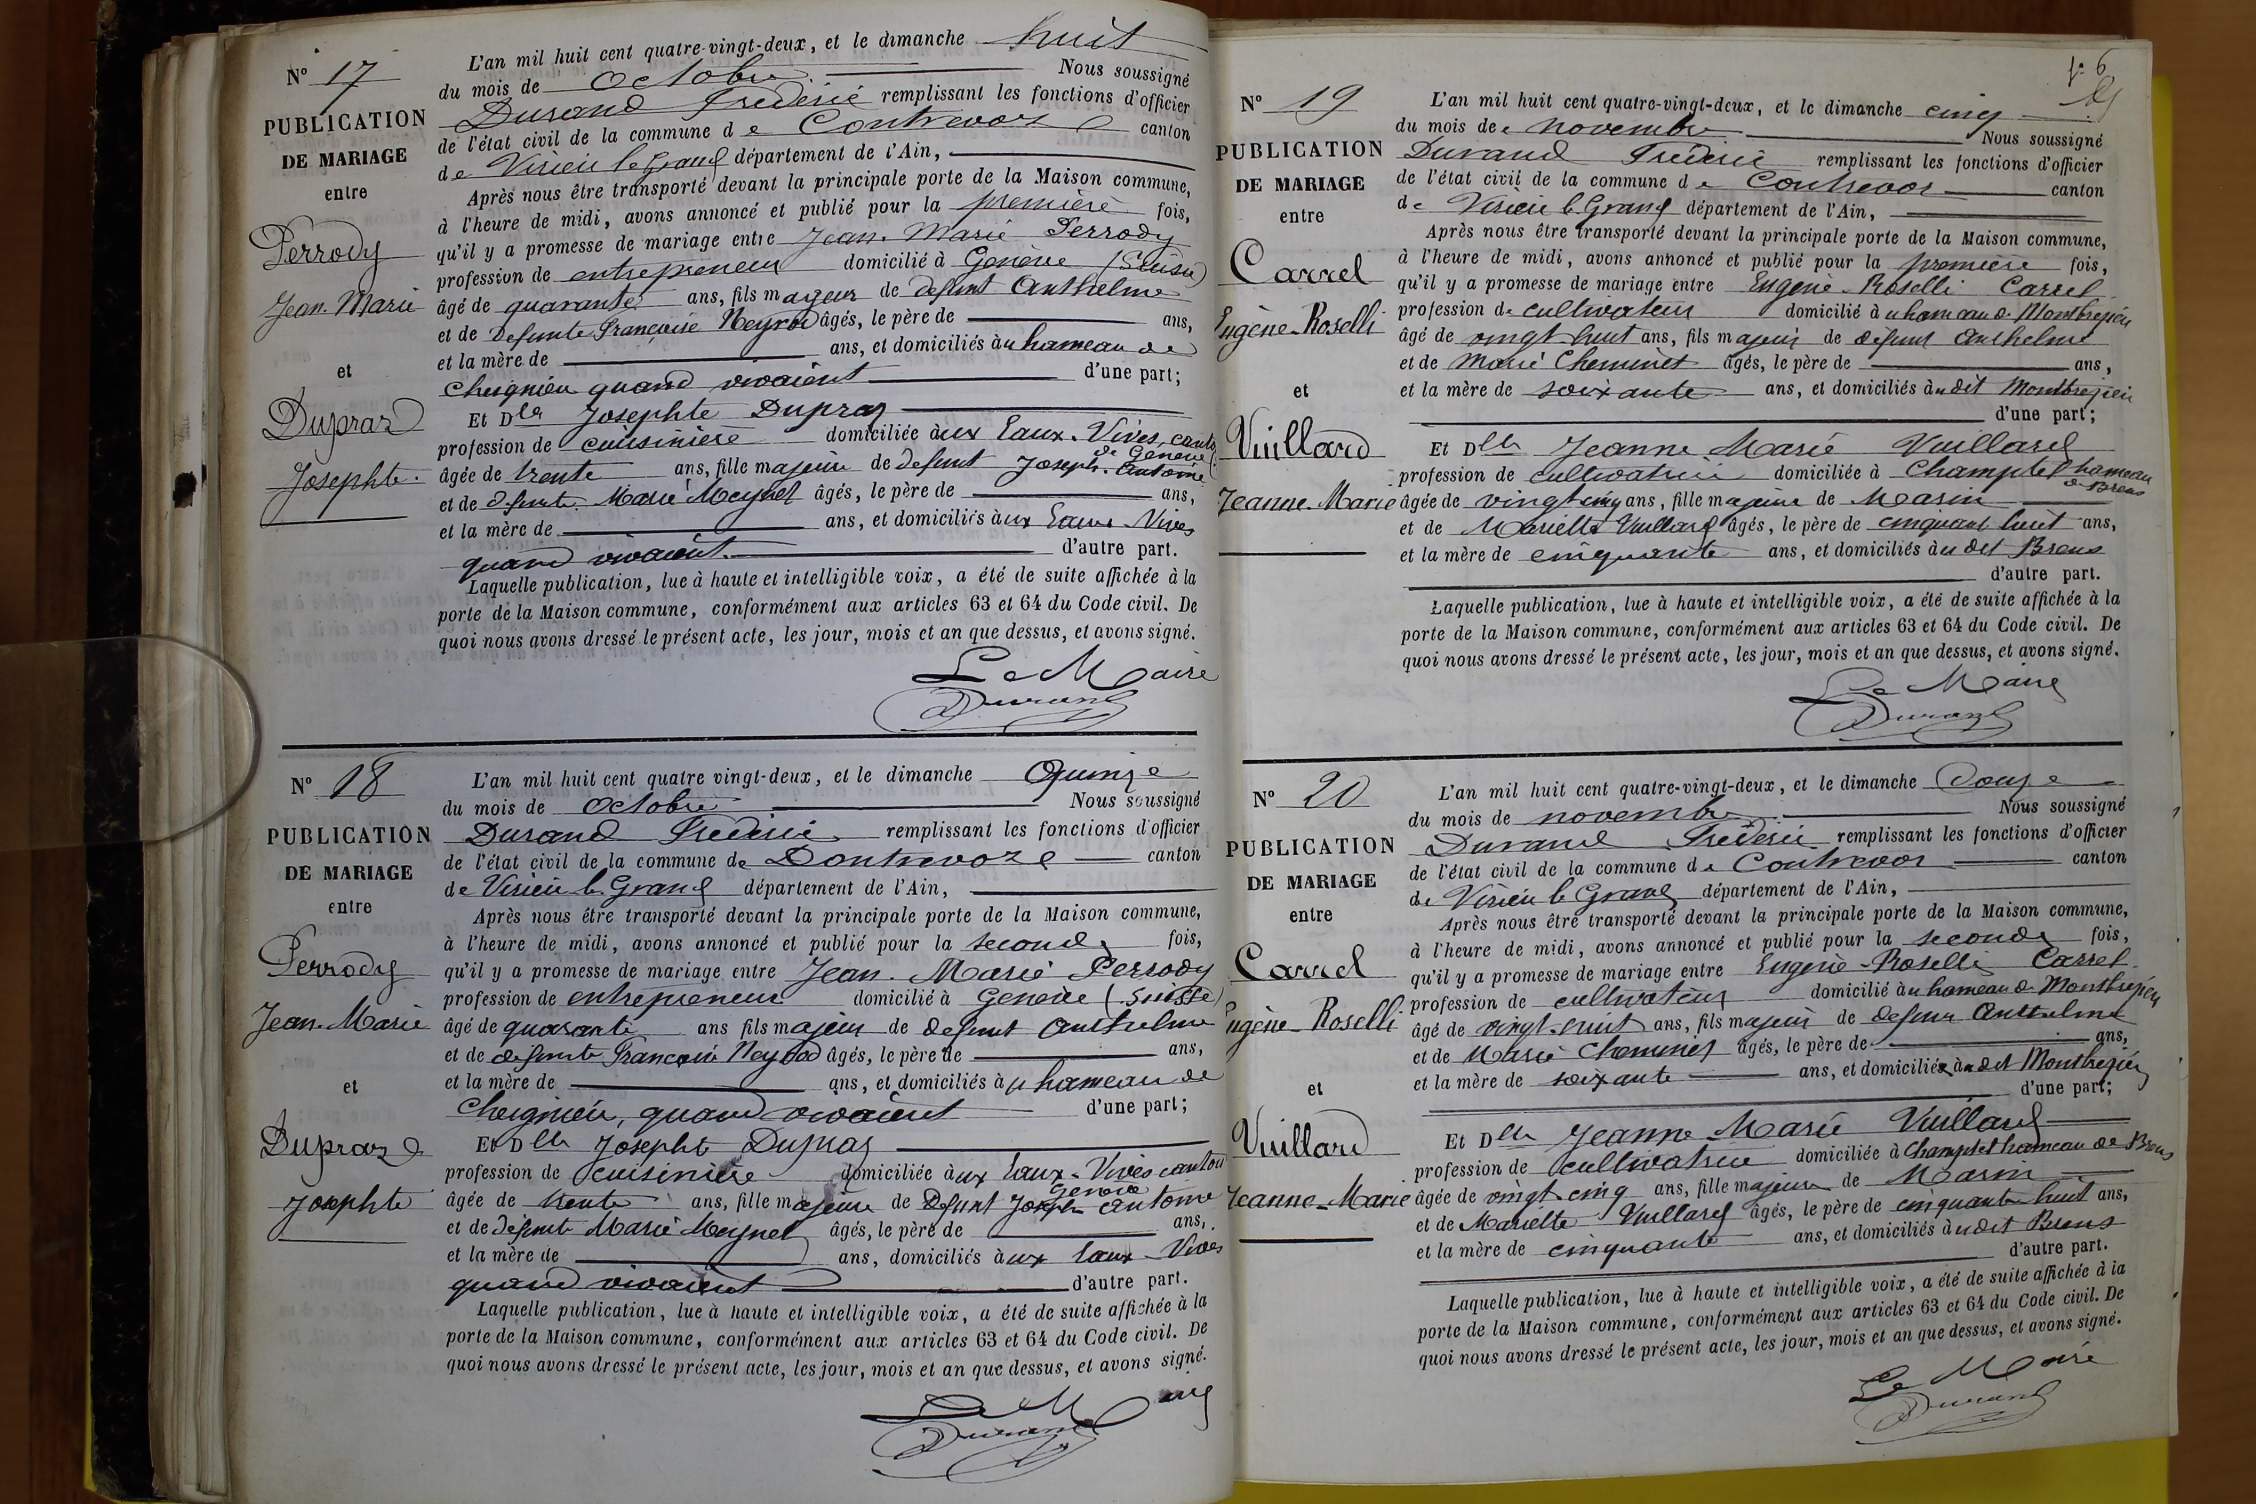 N° 17
PUBLICATION
DE MARIAGE
entre
Perrody
Jean-Marie
et
Dupraz
Josephte
L'an mil huit cent quatre-vingt-deux, et le dimanche huit
du mois de octobre Nous soussigné
Durand Frédéric remplissant les fonctions d'officier
de l'état civil de la commune de Contrevoz canton
de Virieu le Grand département de l'Ain,
Après nous être transporté devant la principale porte de la Maison commune,
à l'heure de midi, avons annoncé et publié pour la première fois,
qu'il y a promesse de mariage entre Jean-Marie Perrody
profession de entrepreneur domicilié à Genève (Suisse)
âgé de quarante ans, fils majeur de defunt Anthelme
et de defunte Françoise Neyrod âgés, le père de ans,
et la mère de ans, et domiciliés à u hameau de
Cheignieu quand vivaient d'une part;
Et Dlle Josephte Dupraz
profession de cuisinière domiciliée à ux Eaux-Vives, canton
de Genève
âgée de trente ans, fille majeure de defunt Joseph-Antoine
et de defunte Marie Meynet âgés, le père de ans,
et la mère de ans, et domiciliés à ux Eaux-Vives
quand vivaient d'autre part.
Laquelle publication, lue à haute et intelligible voix, a été de suite affichée à la
porte de la Maison commune, conformément aux articles 63 et 64 du Code civil. De
quoi nous avons dressé le présent acte, les jour, mois et an que dessus, et avons signé.
Le Maire
Durand
N° 18
PUBLICATION
DE MARIAGE
entre
Perrody
Jean-Marie
et
Dupraz
Josephte
L'an mil huit cent quatre vingt-deux, et le dimanche Quinze
du mois de octobre Nous soussigné
Durand Frédéric remplissant les fonctions d'officier
de l'état civil de la commune de Contrevoz canton
de Virieu le Grand département de l'Ain,
Après nous être transporté devant la principale porte de la Maison commune,
à l'heure de midi, avons annoncé et publié pour la seconde fois,
qu'il y a promesse de mariage entre Jean-Marie Perrody
profession de entrepreneur domicilié à Genève (Suisse)
âgé de quarante ans fils majeur de defunt Anthelme
et de defunte Françoise Neyrod âgés, le père de ans,
et la mère de ans, et domiciliés à u hameau de
Cheignieu, quand vivaient d'une part;
Et Dlle Josephte Dupraz
profession de cuisinière domiciliée à ux Eaux-Vives canton
Genève
âgée de trente ans, fille majeure de defunt Joseph Antoine
et de defunte Marie Meynet âgés, le père de ans,
et la mère de ans, domiciliés à ux Eaux-Vives
quand vivaient d'autre part.
Laquelle publication, lue à haute et intelligible voix, a été de suite affichée à la
porte de la Maison commune, conformément aux articles 63 et 64 du Code civil. De
quoi nous avons dressé le présent acte, les jour, mois et an que dessus, et avons signé.
Le Maire
Durand
fo 6
N° 19
PUBLICATION
DE MARIAGE
entre
Carrel
Eugène-Roselli
et
Vuillard
Jeanne-Marie
L'an mil huit cent quatre-vingt-deux, et le dimanche cinq
du mois de novembre Nous soussigné
Durand Frédéric remplissant les fonctions d'officier
de l'état civil de la commune de Contrevoz canton
de Virieu le Grand département de l'Ain,
Après nous être transporté devant la principale porte de la Maison commune,
à l'heure de midi, avons annoncé et publié pour la première fois,
qu'il y a promesse de mariage entre Eugène-Roselli Carrel
profession de cultivateur domicilié à u hameau de Montbrezieu
âgé de vingt-huit ans, fils majeur de défunt Anthelme
et de Marie Cheminet âgés, le père de ans,
et la mère de soixante ans, et domiciliés à u dit Montbrezieu
d'une part;
Et Dlle Jeanne-Marie Vuillard
profession de cultivatrice domiciliée à Champtel hameau
de Brens
âgée de vingt cinq ans, fille majeure de Marin
et de Mariette Vuillard âgés, le père de cinquante huit ans,
et la mère de cinquante ans, et domiciliés à u dit Brens
d'autre part.
Laquelle publication, lue à haute et intelligible voix, a été de suite affichée à la
porte de la Maison commune, conformément aux articles 63 et 64 du Code civil. De
quoi nous avons dressé le présent acte, les jour, mois et an que dessus, et avons signé.
Le Maire
Durand
N° 20
PUBLICATION
DE MARIAGE
entre
Carrel
Eugène-Roselli
et
Vuillard
Jeanne-Marie
L'an mil huit cent quatre-vingt-deux, et le dimanche Douze
du mois de novembre Nous soussigné
Durand Frédéric remplissant les fonctions d'officier
de l'état civil de la commune de Contrevoz canton
de Virieu le Grand département de l'Ain,
Après nous être transporté devant la principale porte de la Maison commune,
à l'heure de midi, avons annoncé et publié pour la seconde fois,
qu'il y a promesse de mariage entre Eugène-Roselli Carrel
profession de cultivateur domicilié à u hameau de Montbrezieu
âgé de vingt-huit ans, fils majeur de defunt Anthelme
et de Marie Cheminet âgés, le père de ans,
et la mère de soixante ans, et domiciliés à u dit Montbrezieu
d'une part;
Et Dlle Jeanne-Marie Vuillard
profession de cultivatrice domiciliée à Champtel hameau de Brens
âgée de vingt cinq ans, fille majeure de Marin
et de Mariette Vuillard âgés, le père de cinquante huit ans,
et la mère de cinquante ans, et domiciliés à u dit Brens
d'autre part.
Laquelle publication, lue à haute et intelligible voix, a été de suite affichée à la
porte de la Maison commune, conformément aux articles 63 et 64 du Code civil. De
quoi nous avons dressé le présent acte, les jour, mois et an que dessus, et avons signé.
Le Maire
Durand